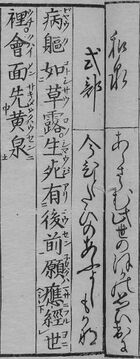 和泉
式部
あらさらむ此世のほかの思ひ出に
今ひとたひのあふよしもかな
病軀如草露生死有後前願應經世
裡會面先黄泉